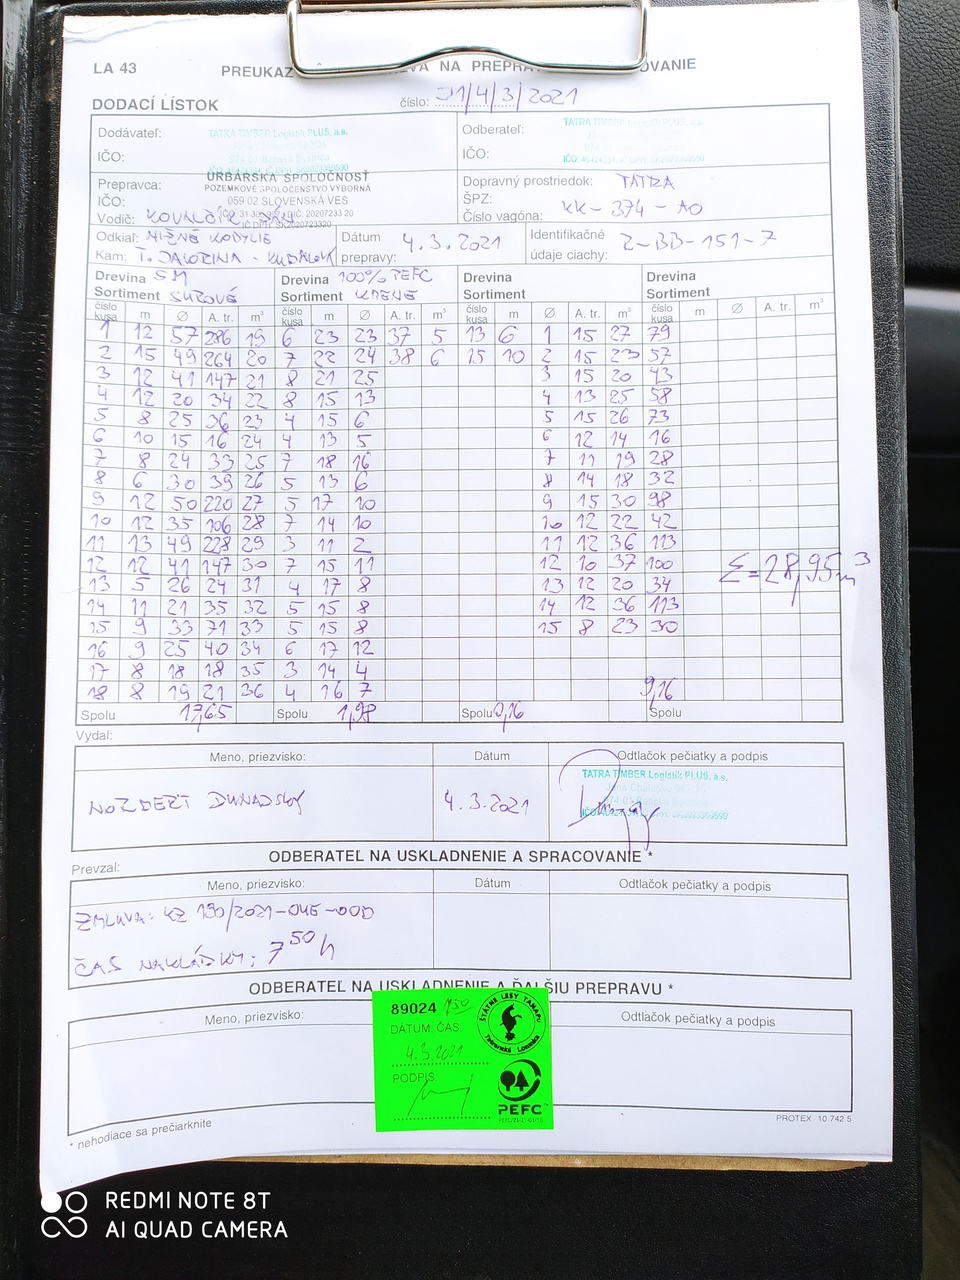 LA 43
PREUKAZ
NA PREPRA
OVANIE
DODACÍ LÍSTOK
číslo: 01/4/3/2021
Dodávateľ:
TATRA TIMBER Logistik PLUS, a.s.
IČO:
Odberateľ:
TATRA TIMBER Logistik PLUS, a.s.
IČO:
Prepravca:
URBÁRSKA SPOLOČNOSŤ
POZEMKOVÉ SPOLOČENSTVO VÝBORNÁ
IČO:
059 02 SLOVENSKÁ VES
Vodič: KOVALČÍK
Dopravný prostriedok: TATRA
ŠPZ:
Číslo vagóna: KK-374-AO
Odkiaľ: NIŽNÉ KODYLIE
Kam: T. JAVORINA -
Dátum
prepravy: 4.3.2021
Identifikačné
údaje ciachy: 2-BB-151-7
Drevina SM
Sortiment SUROVÉ
Drevina 100% PEFC
Sortiment KMENE
Drevina
Sortiment
Drevina
Sortiment
číslo kusa m Ø A. tr. m³ číslo kusa m Ø A. tr. m³ číslo kusa m Ø A. tr. m³ číslo kusa m Ø A. tr. m³
1 12 57 286 19 6 23 23 37 5 13 6 1 15 27 79
2 15 49 264 20 7 22 24 38 6 15 10 2 15 23 57
3 12 41 147 21 8 21 25 3 15 20 43
4 12 20 34 22 8 15 13 4 13 25 58
5 8 25 36 23 4 15 6 5 15 26 73
6 10 15 16 24 4 13 5 6 12 14 16
7 8 24 33 25 7 18 16 7 11 19 28
8 6 30 39 26 5 13 6 8 14 18 32
9 12 50 220 27 5 17 10 9 15 30 98
10 12 35 106 28 7 14 10 10 12 22 42
11 13 49 228 29 3 11 2 11 12 36 113
12 12 41 147 30 7 15 11 12 10 37 100
13 5 26 24 31 4 17 8 13 12 20 34
14 11 21 35 32 5 15 8 14 12 36 113
15 9 33 71 33 5 15 8 15 8 23 30
16 9 25 40 34 6 17 12
17 8 18 18 35 3 14 4
18 8 19 21 36 4 16 7
Σ=28,95m³
9,16
Spolu 17,65 Spolu 1,98 Spolu 0,16 Spolu
Vydal:
Meno, priezvisko: Dátum Odtlačok pečiatky a podpis
TATRA TIMBER Logistik PLUS, a.s.
4.3.2021
ODBERATEĽ NA USKLADNENIE A SPRACOVANIE *
Prevzal:
Meno, priezvisko: Dátum Odtlačok pečiatky a podpis
ZMLUVA: KZ 190/2021-OUE-OOD
ČAS NAKLÁDKY: 7⁵⁰ h
ODBERATEĽ NA USKLADNENIE A ĎALŠIU PREPRAVU *
Meno, priezvisko:
Odtlačok pečiatky a podpis
89024 750
DÁTUM. ČAS:
4.3.2021
PODPIS:
ŠTÁTNE LESY TANAPU
Tatranská Lomnica
PEFC
* nehodiace sa prečiarknite
PROTEX 10 742 5
REDMI NOTE 8T
AI QUAD CAMERA